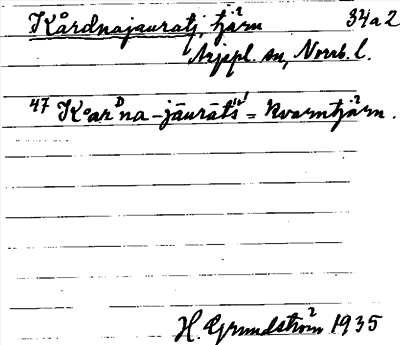 Kårdnajauratj, tjärn 34a2
Arjepl. sn, Norrb. l.
47 K°arᴰna-jāurātśˈ = Kvarntjärn.
H. Grundström 1935